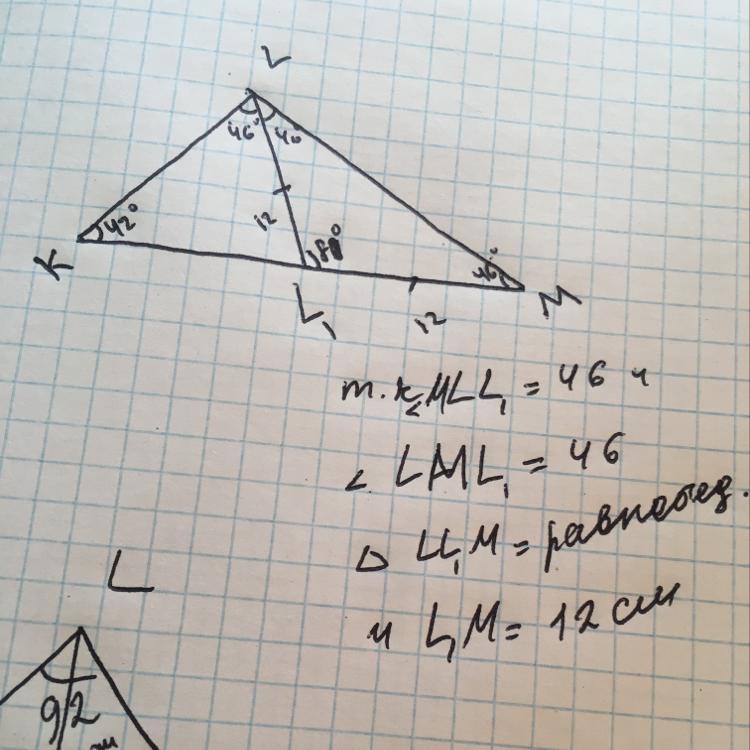 L
46° 46°
42°
12
88°
46°
K
L₁
12
M
т.к ∠MLL₁ = 46 и
∠ LML₁ = 46
△ LL₁M = равнобед.
и L₁M = 12 см
L
92